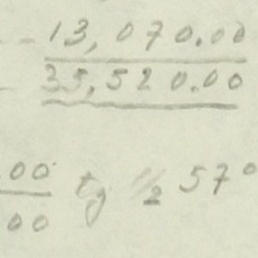 - 13,070.00
- 35,520.00
00 tg ½ 57°
00